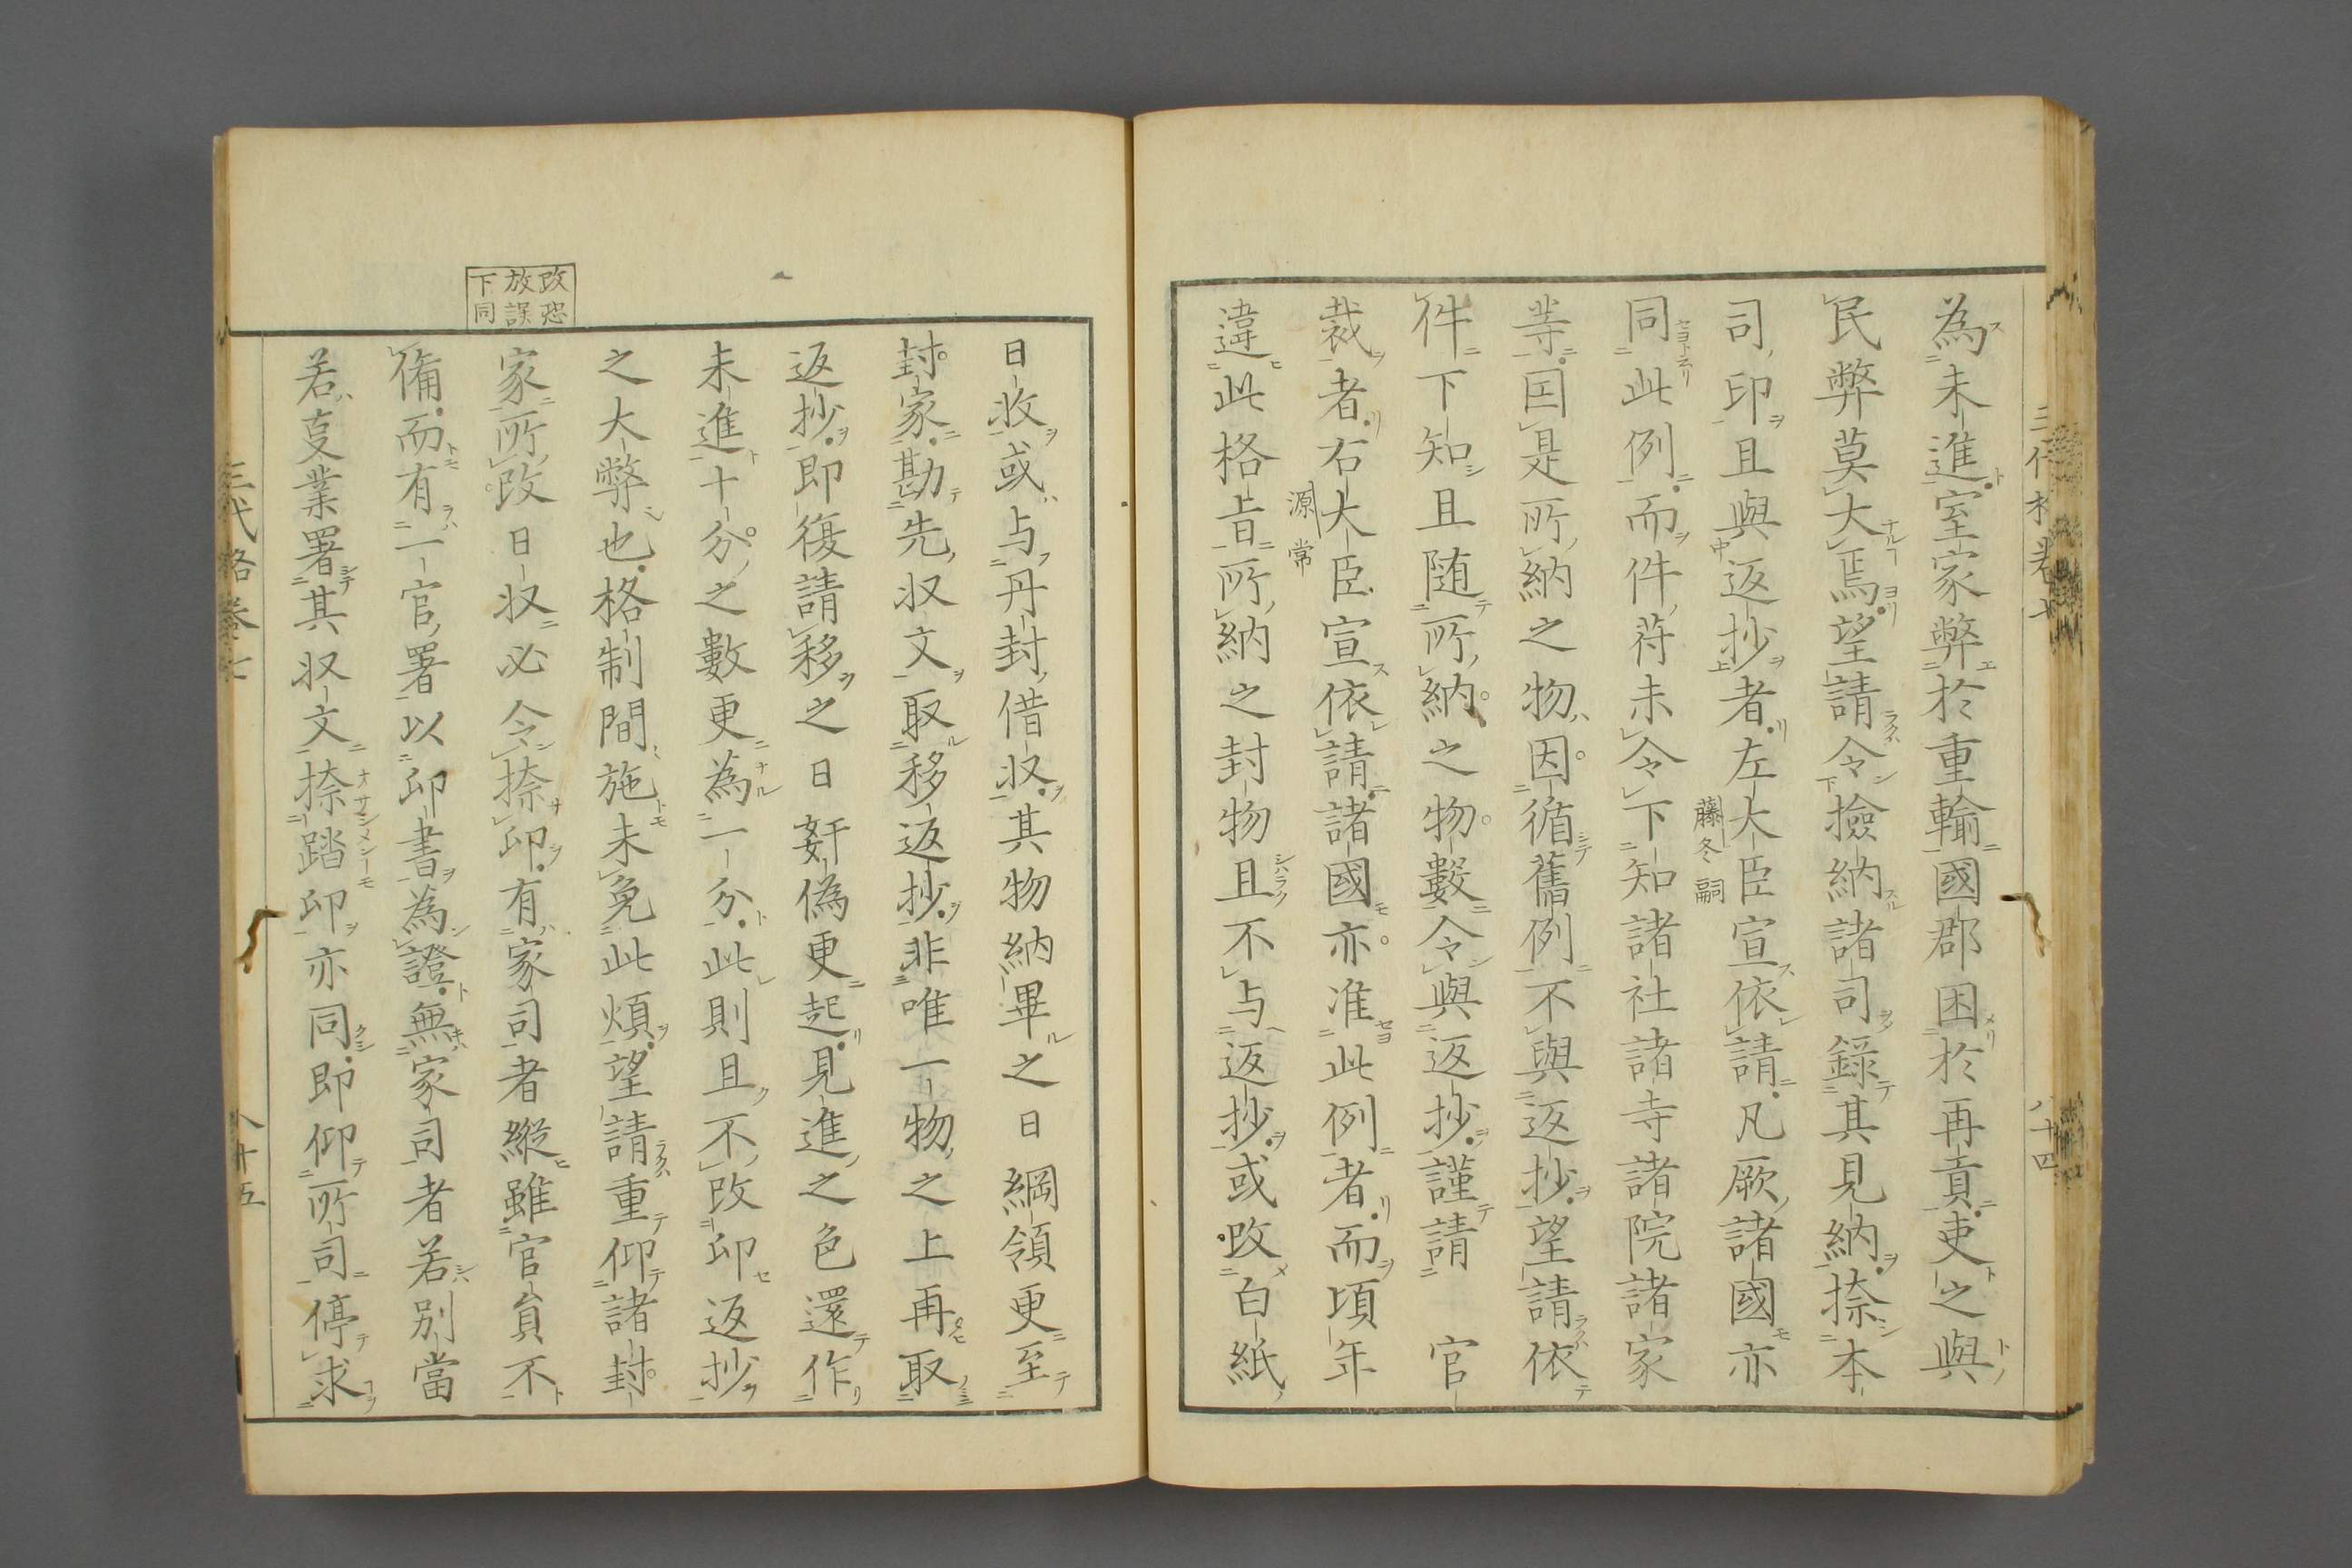 為未進室家弊於重輸國郡困於再貢吏之與
民弊莫大焉望請令撿納諸司錄其見納捺本
司印且與返抄者左大臣宣依請凡厥諸國亦
藤冬嗣
同此例而件符未令下知諸社諸寺諸院諸家
等因是所納之物因循舊例不與返抄望請依
件下知且随所納之物數令與返抄謹請　官
裁者右大臣宣依請諸國亦准此例者而頃年
源常
違此格旨所納之封物且不与返抄或改白紙
改恐
放誤
下同
日收或与丹封借収其物納畢之日綱領更至
封家勘先収文取移返抄非唯一物之上再取
返抄即復請移之日奸偽更起見進之色還作
未進十分之數更為一分此則且不改印返抄
之大弊也格制間施未免此煩望請重仰諸封
家所改日収必令捺印有家司者縱雖官員不
備而有一官署以印書為證無家司者若別當
若夏業署其収文捺踏印亦同即仰所司停求
三代格卷七
八十五